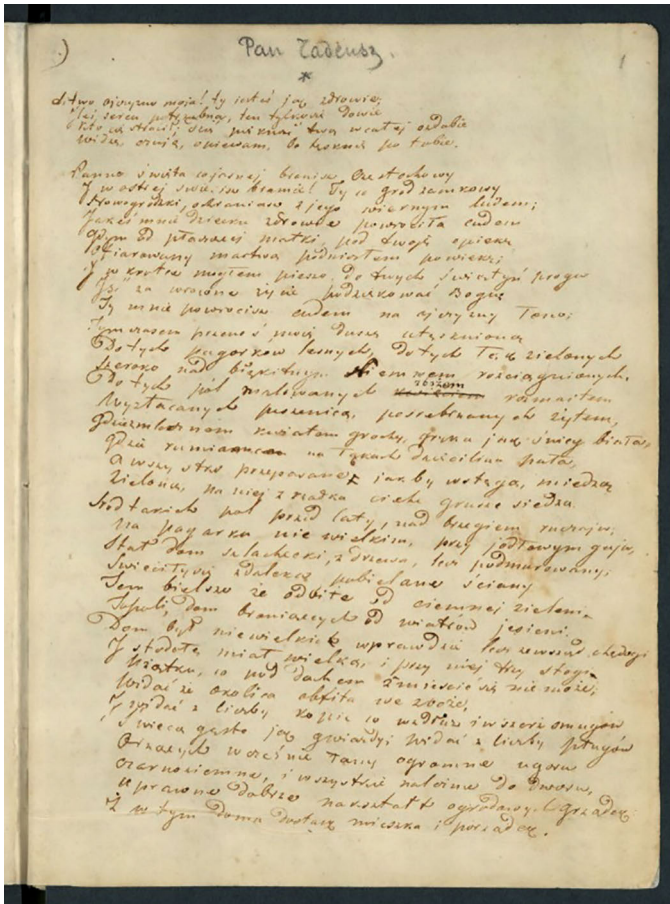 Pan Tadeusz.
*
1
Litwo ojczyzno moja! ty jesteś jak zdrowie,
ten tylko się dowie
Kto cię stracił; dziś piękność twą w całej ozdobie
Widzę, czuję, opiewam, bo tęsknię po tobie.
Panno święta co jasnej bronisz Częstochowy
I w ostrej świecisz bramie! Ty co gród zamkowy
Nowogródzki, ochraniasz z jego wiernym ludem;
Jakeś mnie dziecko zdrowie powróciła cudem
Gdym od płaczącej matki, pod twoję opiekę
Ofiarowany martwą podniosłem powiekę;
I w krotce mogłem pieszo, do twych świątyń progu
Iść za wrócone życie podziękować Bogu;
Tymczasem przenoś moją duszę utęsknioną
Do tych pagorkow lesnych, do tych łąk zielonych
Szeroko nad błękitnym Niemnem rosciągnionych,
Do tych pól malowanych zbożem rozmaitem
Wyzłacanych pszenicą, posrebrzanych żytem,
Gdzie kwiatem grochy, gryka jak śnieg biała,
Gdzie na łąkach dzięcielina pała,
A wszystko przepasane jakby wstęgą, miedzą
Zieloną, na niej z rzadka ciche grusze siedzą.
Sród takich pol przed laty, nad brzegiem ruczaju,
Na pagorku nie wielkim, przy jodłowym gaju,
Stał dom szlachecki, z drzewa, lecz podmurowany;
Swieciły się zdaleka pobielane ściany
Tem bielsze że odbite od ciemnej zieleni
Topoli, dom broniących od wiatrów jesieni.
Dom był niewielki wprawdzie lecz zewsząd chędogi
I stodołę miał wielką, i przy niej trzy stogi
Użątku, co pod dachem zmieścić się nie może;
Widać że okolica obfita we zboże,
I widać z liczby kopic co wzdłuż i wszerz smugów
Świecą gęsto jak gwiazdy, widać z liczby pługów
Orzących wcześnie łany ogromne ugoru
Czarnoziemne, i wszystkie należne do dworu,
Uprawne dobrze nakształt ogrodowych grządek:
I w tym domu dostatek mieszka i porządek.